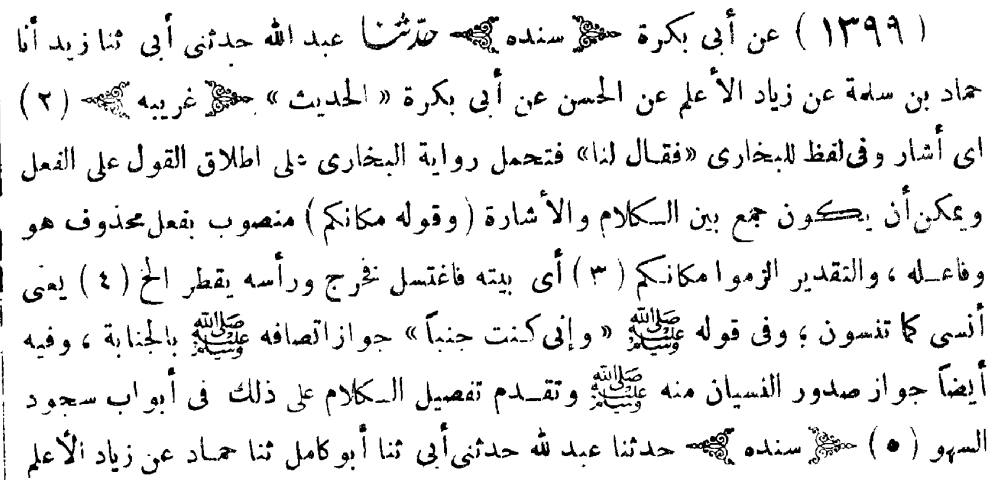 ( ١٣٩٩ ) عن أبى بكرة سنده حدّثنا عبد الله حدثنى أبى ثنا زيد أنا
حماد بن سلمة عن زياد الأعلم عن الحسن عن أبى بكرة « الحديث » غريبه ( ٢ )
اى أشار وفى لفظ للبخارى «فقال لنا» فتحمل رواية البخارى على اطلاق القول على الفعل
ويمكن أن يكون جمع بين الكلام والأشارة ( وقوله مكانكم ) منصوب بفعل محذوف هو
وفاعله ، والتقدير الزموا مكانكم ( ٣ ) أى بيته فاغتسل نخرج ورأسه يقطر الخ ( ٤ ) يعنى
أنسى كما تنسون ؛ وفى قوله ﷺ « وإنى كنت جنباً » جواز اتصافه ﷺ بالجنابة ، وفيه
أيضاً جواز صدور النسيان منه ﷺ وتقدم تفصيل الكلام على ذلك فى أبواب سجود
السهو ( ٥ ) سنده حدثنا عبد لله حدثنى أبى ثنا أبو كامل ثنا حماد عن زياد الأعلم